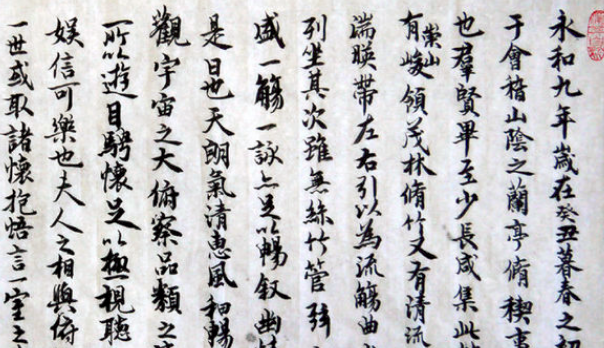 永和九年歲在癸丑暮春之初
于會稽山陰之蘭亭脩稧事
也羣賢畢至少長咸集此
有崇山峻領茂林脩竹又有清流
湍暎帶左右引以為流觴曲
列坐其次雖無絲竹管弦
盛一觴一詠亦足以暢叙幽情
是日也天朗氣清惠風和暢
觀宇宙之大俯察品類之
所以遊目騁懷足以極視聽
娛信可樂也夫人之相與俯
一世或取諸懷抱悟言一室之